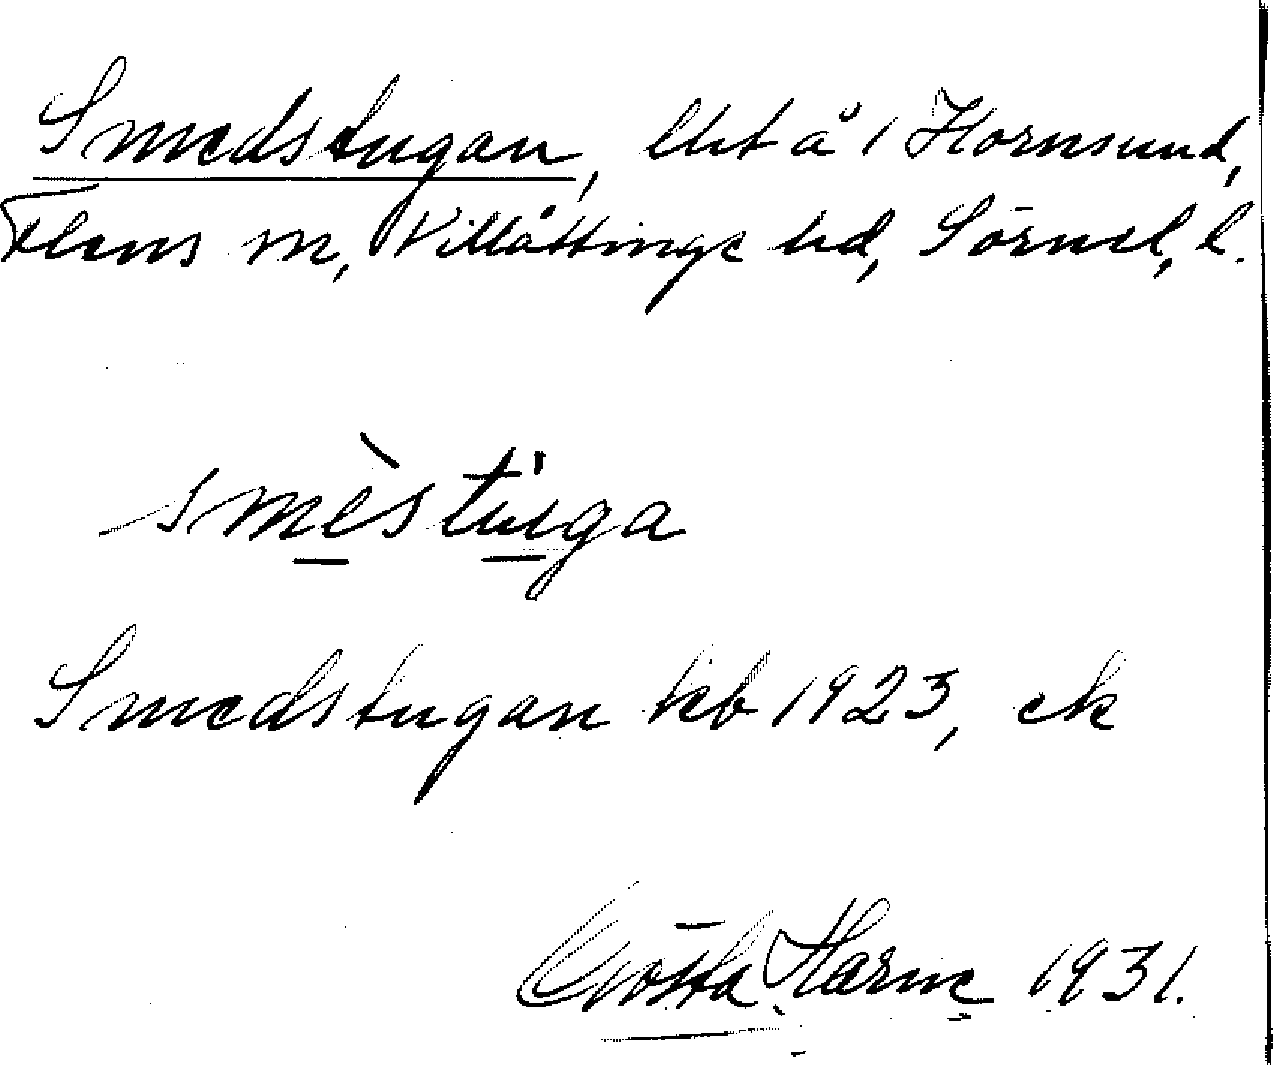 Smedstugan, lht å 1 Hornsund,
Flens sn, Villåttinge hd, Sörml. l.
smèstùga
Smedstugan kb 1923, ek
Gösta Harne 1931.